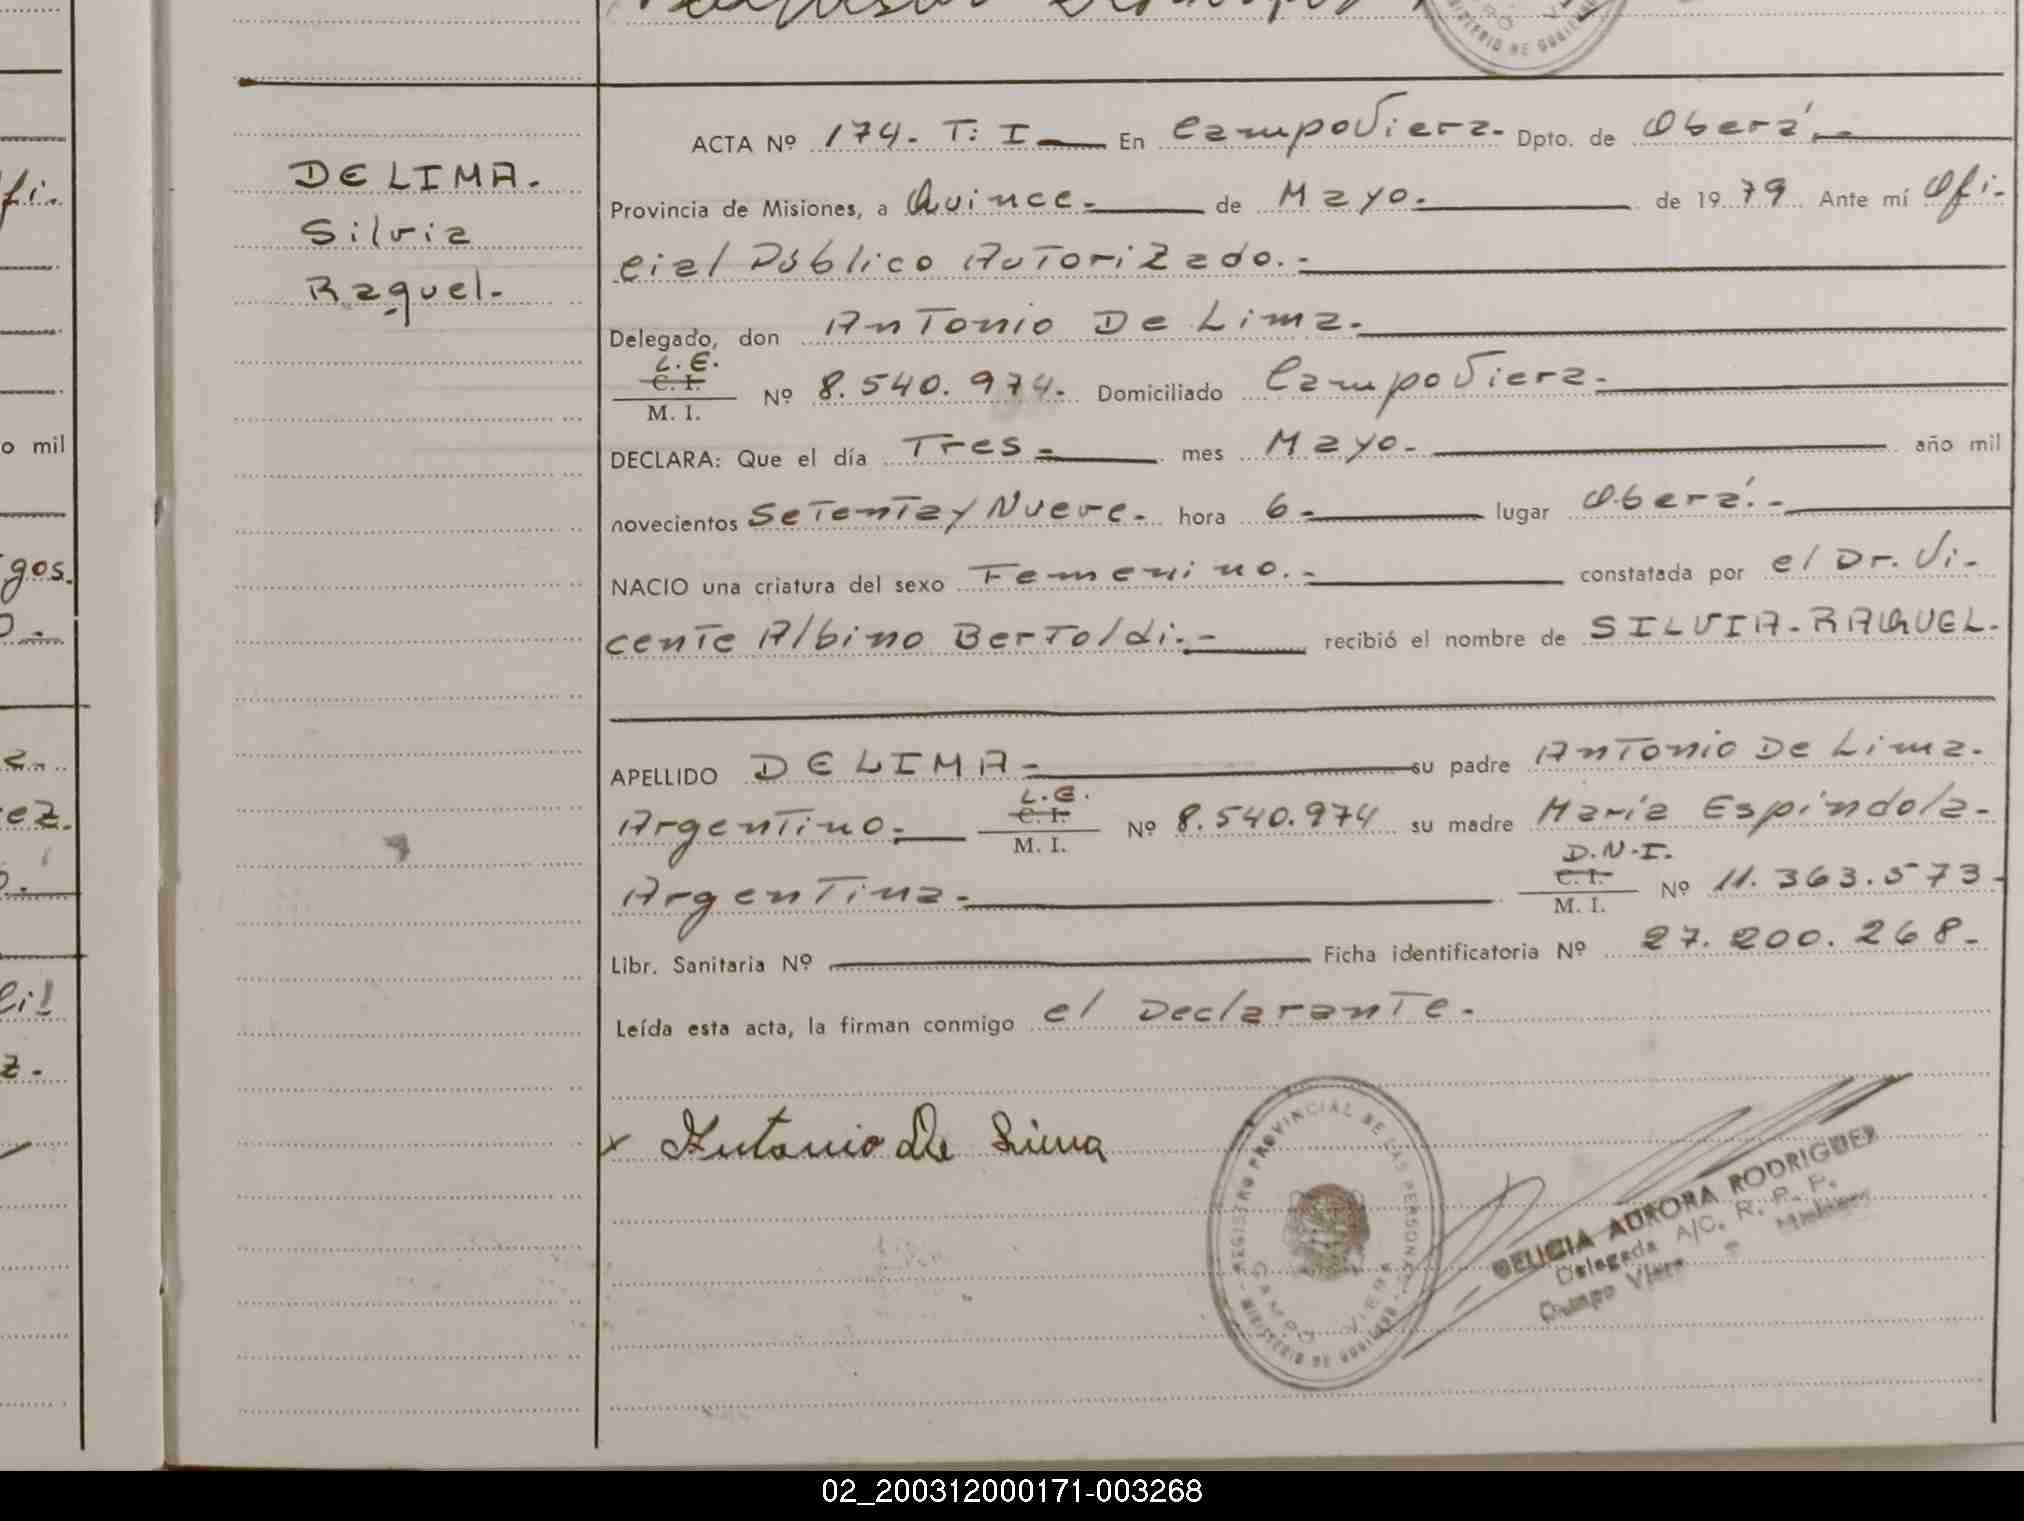 DE LIMA.
Silvia
Raquel.
ACTA Nº 174. T: I En Campo Viera. Dpto. de Oberá.-
Provincia de Misiones, a Quince. de Mayo. de 1979 Ante mí Ofi-
cial Público Autorizado.-
Delegado, don Antonio De Lima.
L.E.
C. I.
M. I.
Nº 8.540.974. Domiciliado Campo Viera.
DECLARA: Que el día Tres mes Mayo. año mil
novecientos Setenta y Nueve. hora 6 lugar Oberá.-
NACIO una criatura del sexo Femenino.- constatada por el Dr. Vi-
cente Albino Bertoldi.- recibió el nombre de SILVIA-RAQUEL-
APELLIDO DE LIMA- su padre Antonio De Lima.
L.E.
Argentino. C. I. Nº 8.540.974 su madre María Espíndola-
M. I.
D.N.I.
Argentina. C. I. Nº 11.363.573-
M. I.
Libr. Sanitaria Nº Ficha identificatoria Nº 27.200.268-
Leída esta acta, la firman conmigo el Declarante.
x Antonio De Lima
REGISTRO PROVINCIAL DE LAS PERSONAS
CAMPO VIERA
MINISTERIO DE GOBIERNO
DELICIA AURORA RODRIGUEZ
Delegada A/C. R. P. P.
Campo Viera - Misiones
o mil
gos.
ez.
02_200312000171-003268